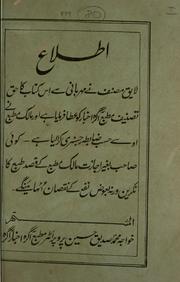 اطلاع
لایق مصنف نے مہربانی سے اس کتاب کا حق
تصنیف مطبع آگرہ اخبار کو عطا فرمایا ہے اور مالک مطبع نے
اوسے حسب ضابطہ رجسٹری کرالیا ہے ۔ کوئی
صاحب بغیر اجازت مالک مطبع کے قصد طبع کا
نکریں ورنہ بعوض نفع کے نقصان اُٹھائینگے۔
المشتہر
خواجہ محمد صدیق حسین پروپرائٹر مطبع آگرہ اخبار آگرہ